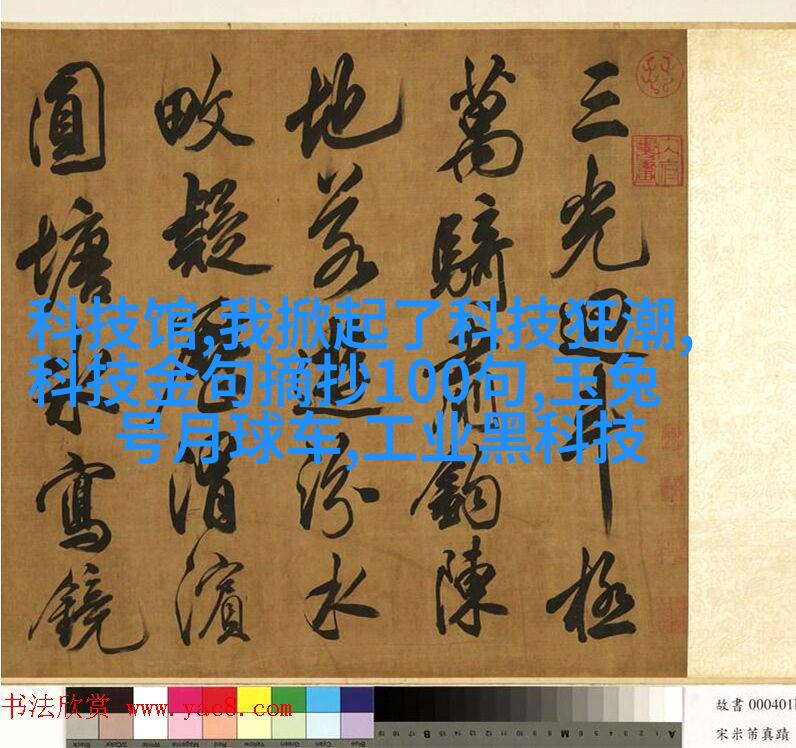 三光迴斗極
萬騎鈞陳
地若遊汾水
畋疑渭濱
圓塘寫鏡
科技馆,我掀起了科技狂潮,
科技金句摘抄100句,玉兔
号月球车,工业黑科技
书法欣赏 www.yac8.com
故書 000401
宋米芾真蹟